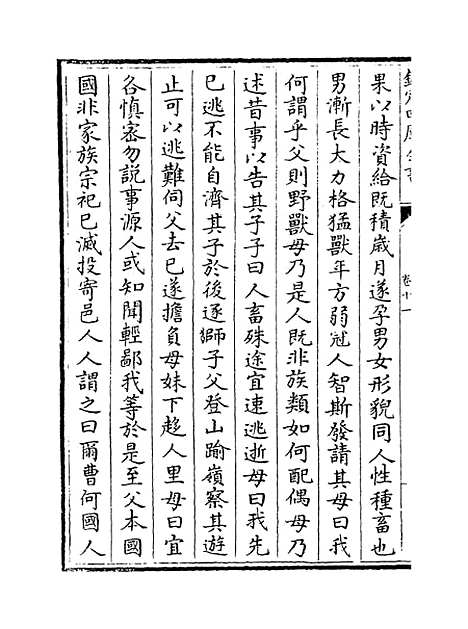 欽定四庫全書
卷十一
果以時資給既積歲月遂孕男女形貌同人性種畜也
男漸長大力格猛獸年方弱冠人智斯發請其母曰我
何謂乎父則野獸母乃是人既非族類如何配偶母乃
述昔事以告其子子曰人畜殊途宜速逃逝母曰我先
已逃不能自濟其子於後逐獅子父登山踰嶺察其遊
止可以逃難伺父去已遂擔負母妹下趍人里母曰宜
各慎密勿說事源人或知聞輕鄙我等於是至父本國
國非家族宗祀已滅投寄邑人人謂之曰爾曹何國人